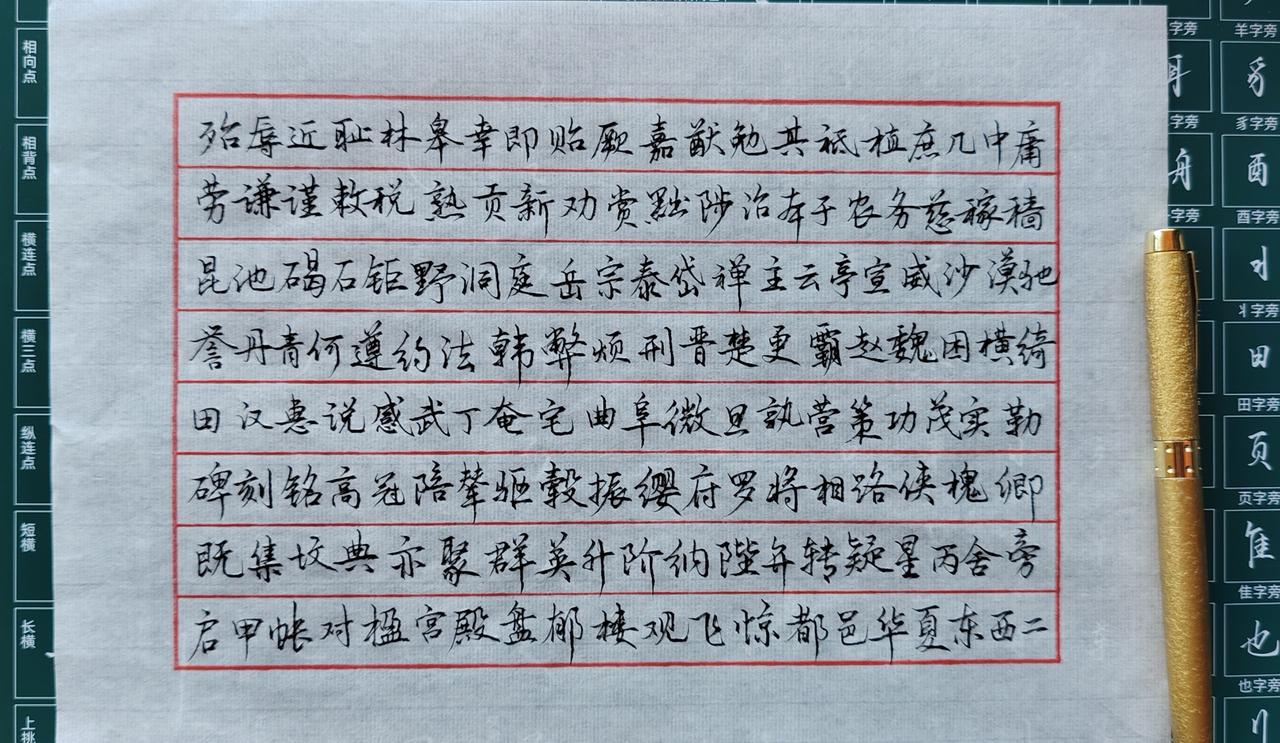 相向点
相背点
横连点
横三点
纵连点
短横
长横
上挑
殆辱近耻林皋幸即贻厥嘉猷勉其祗植庶几中庸
劳谦谨敕税熟贡新劝赏黜陟治本于农务慈稼穑
昆池碣石钜野洞庭岳宗泰岱禅主云亭宣威沙漠驰
誉丹青何遵约法韩弊烦刑晋楚更霸赵魏困横绮
田汉惠说感武丁奄宅曲阜微旦孰营策功茂实勒
碑刻铭高冠陪辇驱毂振缨府罗将相路侠槐卿
既集坟典亦聚群英升阶纳陛弁转疑星丙舍旁
启甲帐对楹宫殿盘郁楼观飞惊都邑华夏东西二
字旁
羊字旁
豸
字旁
豸字旁
舟
酉
字旁
酉字旁
丬
丬字旁
田
田字旁
页
页字旁
隹
隹字旁
也
也字旁